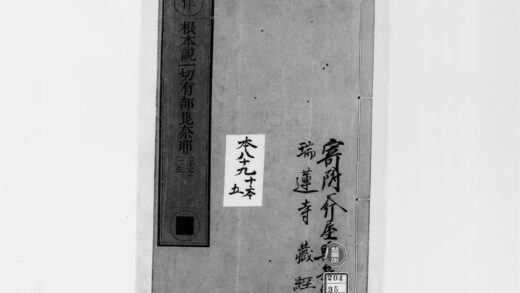 寄附介屋
瑞蓮寺藏經
本八十九ノ十本
五
根本說一切有部毘奈耶
204
35